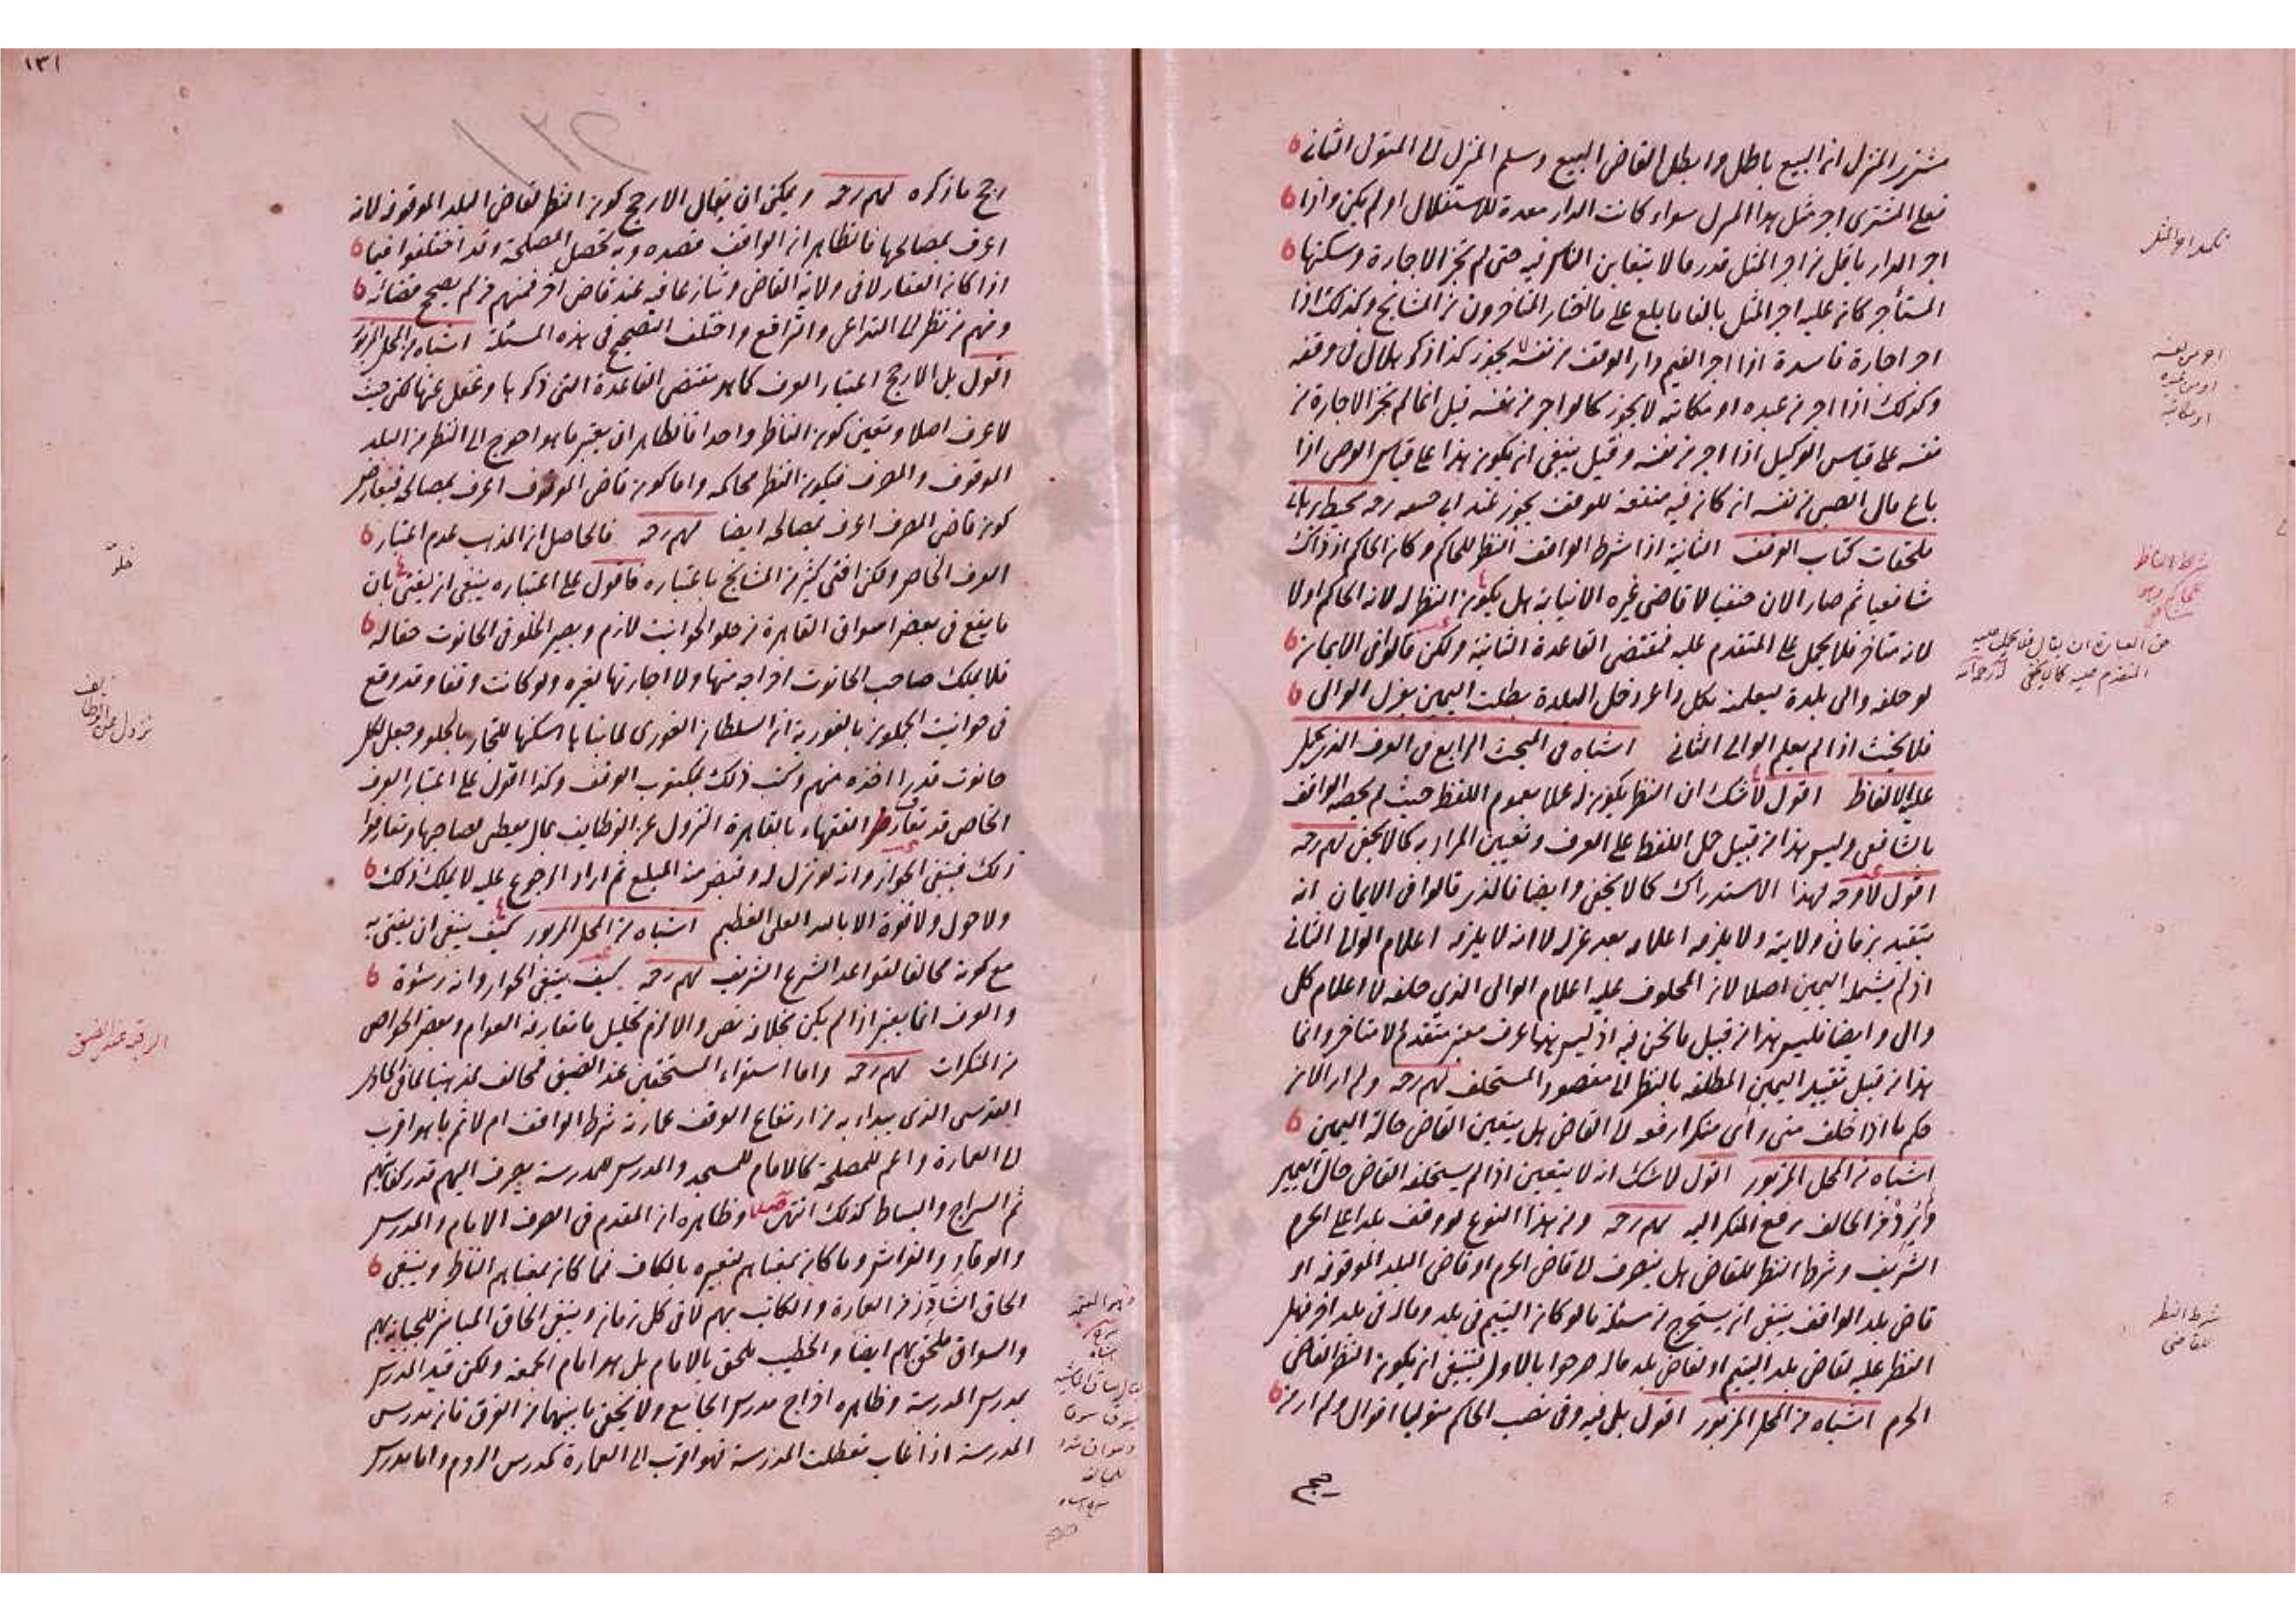 مشتري المنزل ان البيع باطل وابطل القاضي البيع وسلم المنزل الى المتولي الثاني
فعلى المشتري اجر مثل هذا المنزل سواء كانت الدار معدة للاستغلال او لم يكن واذا
اجر الدار باقل من اجر المثل قدر ما لا يتغابن الناس فيه حتى لم تجز الاجارة وسكنها
المستأجر كان عليه اجر المثل بالغا ما بلغ على ما اختار المتأخرون من المشايخ وكذلك اذا
اجر اجارة فاسدة اذا اجر القيم دار الوقف من نفسه لا يجوز كذا ذكر هلال في وقفه
وكذلك اذا اجر من عبده او مكاتبه لا يجوز كما لو اجر من نفسه قيل انما لم تجز الاجارة من
نفسه على قياس الوكيل اذا اجر من نفسه وقيل ينبغي ان يكون هذا على قياس الوصي اذا
باع مال الصبي من نفسه ان كان فيه منفعة للوقف يجوز عند ابي حنيفه رحمه محيط برهاني
ملحقات كتاب الوقف الثانية اذا شرط الواقف النظر للحاكم وكان الحاكم اذ ذاك
شافعيا ثم صار الان حنفيا لا قاضي غيره الا نيابة هل يكون النظر له لانه الحاكم اولا
لانه متأخر فلا يحمل على المتقدم عليه فمقتضى القاعدة الثانية ولكن قالوا في الايمان
لو حلفه والي بلدة ليعلمنه بكل داعر دخل البلدة بطلت اليمين بعزل الوالي
فلا يحنث اذا لم يعلم الوالي الثاني اشباه في المبحث الرابع في العرف الذي يحمل
عليه الالفاظ اقول لا شك ان النظر يكون له عملا بعموم اللفظ حيث لم يخصه الواقف
بالشافعي وليس هذا من قبيل حمل اللفظ على العرف وتعيين المراد به كما لا يخفى لمهم رحمه
اقول لا وجه لهذا الاستدراك كما لا يخفى وايضا فالذي قالوا في الايمان انه
يتقيد بزمان ولايته ولا يلزمه اعلامه بعد عزله لا انه لا يلزمه اعلام الوالي الثاني
اذ لم يشمله اليمين اصلا لان المحلوف عليه اعلام الوالي الذي حلفه لا اعلام كل
وال وايضا فليس هذا من قبيل ما نحن فيه اذ ليس هنا عرف معتبر متقدم لا متأخر وانما
هذا من قبيل تقييد اليمين المطلقة بالنظر الى مقصود المستحلف لمهم رحمه ولم ار الان
حكم ما اذا حلف متى رأى منكرا رفعه الى القاضي هل يتعين القاضي حالة اليمين
اشباه من المحل المزبور اقول لا شك انه لا يتعين اذا لم يستحلفه القاضي حال اليمين
الحالف برفع المنكر اليه لمهم رحمه ومن هذا النوع لو وقف بلدا على الحرم
الشريف وشرط النظر للقاضي هل ينصرف الى قاضي الحرم او قاضي البلد الموقوفة او
قاضي بلد الواقف ينبغي ان يستخرج من مسئلة ما لو كان اليتيم في بلد وماله في بلد اخر فهل
النظر عليه لقاضي بلد اليتيم او لقاضي بلد ماله صرحوا بالاول فينبغي ان يكون النظر لقاضي
الحرم اشباه من المحل المزبور اقول بل فيه وفي نصب الحاكم متوليا اقوال ولم ار من
رجح
تكمد اجر المثل
اجر من نفسه
او من عبده
او مكاتبه
شرط النظر
للقاضي
١٣١
رجح ما ذكره لمهم رحمه ويمكن ان يقال الارجح كون النظر لقاضي البلد الموقوفة لانه
اعرف بمصالحها فالظاهر ان الواقف قصده وبه تحصل المصلحة وقد اختلفوا فيما
اذا كان العقار لا في ولاية القاضي وتنازعا فيه عند قاضي اخر فمنهم من لم يصحح قضائه
ومنهم من نظر الى التداعي والترافع واختلف التصحيح في هذه المسئلة اشباه من المحل المزبور
اقول بل الارجح اعتبار العرف كما هو مقتضى القاعدة التي ذكرها وغفل عنها لكن حيث
لا عرف اصلا وتعين كون الناظر واحدا فالظاهر ان يعتبر ما هو احوج الى النظر من البلد
الموقوف والمصرف فيكون النظر لحاكمه واما كون قاضي الموقوف اعرف بمصالحه فيعارضه
كون قاضي المصرف اعرف بمصالحه ايضا لمهم رحمه فالحاصل ان المذهب عدم اعتبار
العرف الخاص ولكن افتى كثير من المشايخ باعتباره فاقول على اعتباره ينبغي ان يفتى بان
ما يقع في بعض اسواق القاهرة من خلو الحوانيت لازم ويصير الخلو في الحانوت حقا له
فلا يملك صاحب الحانوت اخراجه منها ولا اجارتها لغيره ولو كانت وقفا وقد وقع
في حوانيت الجملون بالغورية ان السلطان الغوري لما بناها اسكنها للتجار بالخلو وجعل لكل
حانوت قدرا اخذه منهم وكتب ذلك بمكتوب الوقف وكذا اقول على اعتبار العرف
الخاص قد تعارف الفقهاء بالقاهرة النزول عن الوظايف بمال يعطى لصاحبها وتعارفوا
ذلك فينبغي الجواز وانه لو نزل له وقبض منه المبلغ ثم اراد الرجوع عليه لا يملك ذلك
ولا حول ولا قوة الا بالله العلي العظيم اشباه من المحل المزبور كيف ينبغي ان يفتى به
مع كونه مخالفا لقواعد الشرع الشريف لمهم رحمه كيف ينبغي الجواز وانه رشوة
والعرف انما يعتبر اذا لم يكن بخلافه نص والا لزم تحليل ما تعارفه العوام وبعض الخواص
من المنكرات لمهم رحمه واما استواء المستحقين عند الضيق فمخالف لمذهبنا لما في الحاوي
القدسي الذي يبداء به من ارتفاع الوقف عمارته شرط الواقف ام لا ثم ما هو اقرب
الى العمارة واعم للمصلحة كالامام للمسجد والمدرس للمدرسة يصرف اليهم قدر كفايتهم
ثم السراج والبساط كذلك انتهى وظاهره ان المقدم في الصرف الامام والمدرس
والوقاد والفراش وما كان بمعناهم لتعبيره بالكاف فما كان بمعناهم الناظر وينبغي
الحاق الشاد زمن العمارة والكاتب بهم لا في كل زمان وينبغي الحاق المباشر للجباية بهم
والسواق ملحق بهم ايضا والخطيب ملحق بالامام بل هو امام الجمعة ولكن قيد المدرس
بمدرس المدرسة وظاهره اخراج مدرس الجامع ولا يخفى ما بينهما من الفرق فان مدرس
المدرسة اذا غاب تعطلت المدرسة فهو اقرب الى العمارة كمدرس الروم واما مدرس
خلو
نزول عن الوظايف